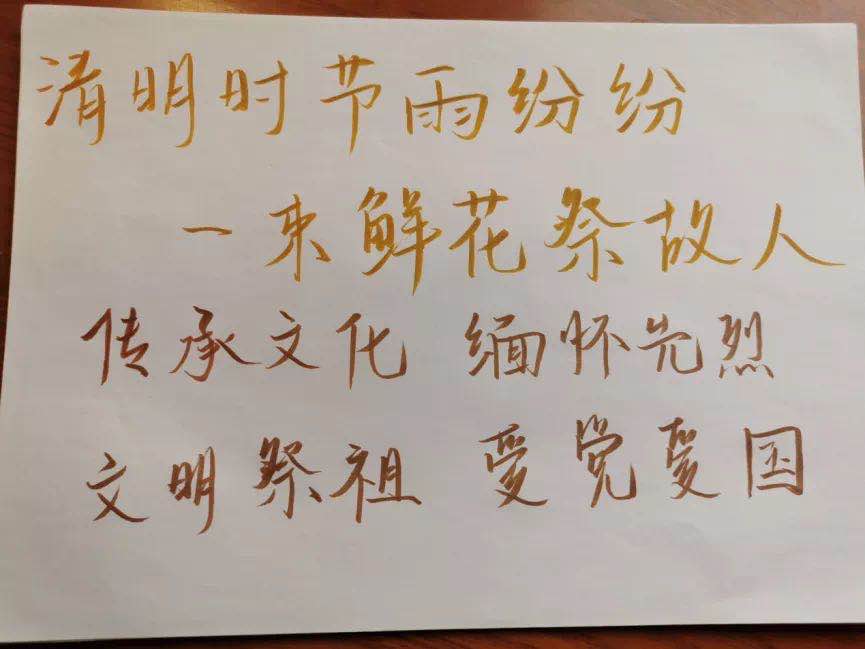 清明时节雨纷纷
一束鲜花祭故人
传承文化 缅怀先烈
文明祭祖 爱党爱国